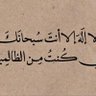 لا إِلَٰهَ إِلَّا أَنْتَ سُبْحَانَكَ
إِنِّي كُنْتُ مِنَ الظَّالِمِينَ